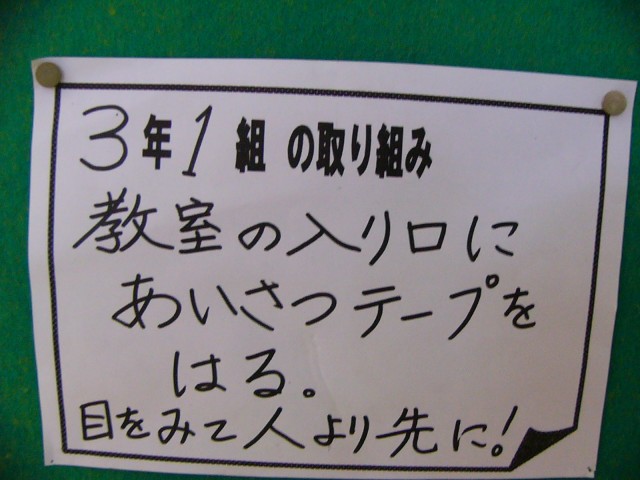 3年1組の取り組み
教室の入り口に
あいさつテープを
はる。
目をみて人より先に!